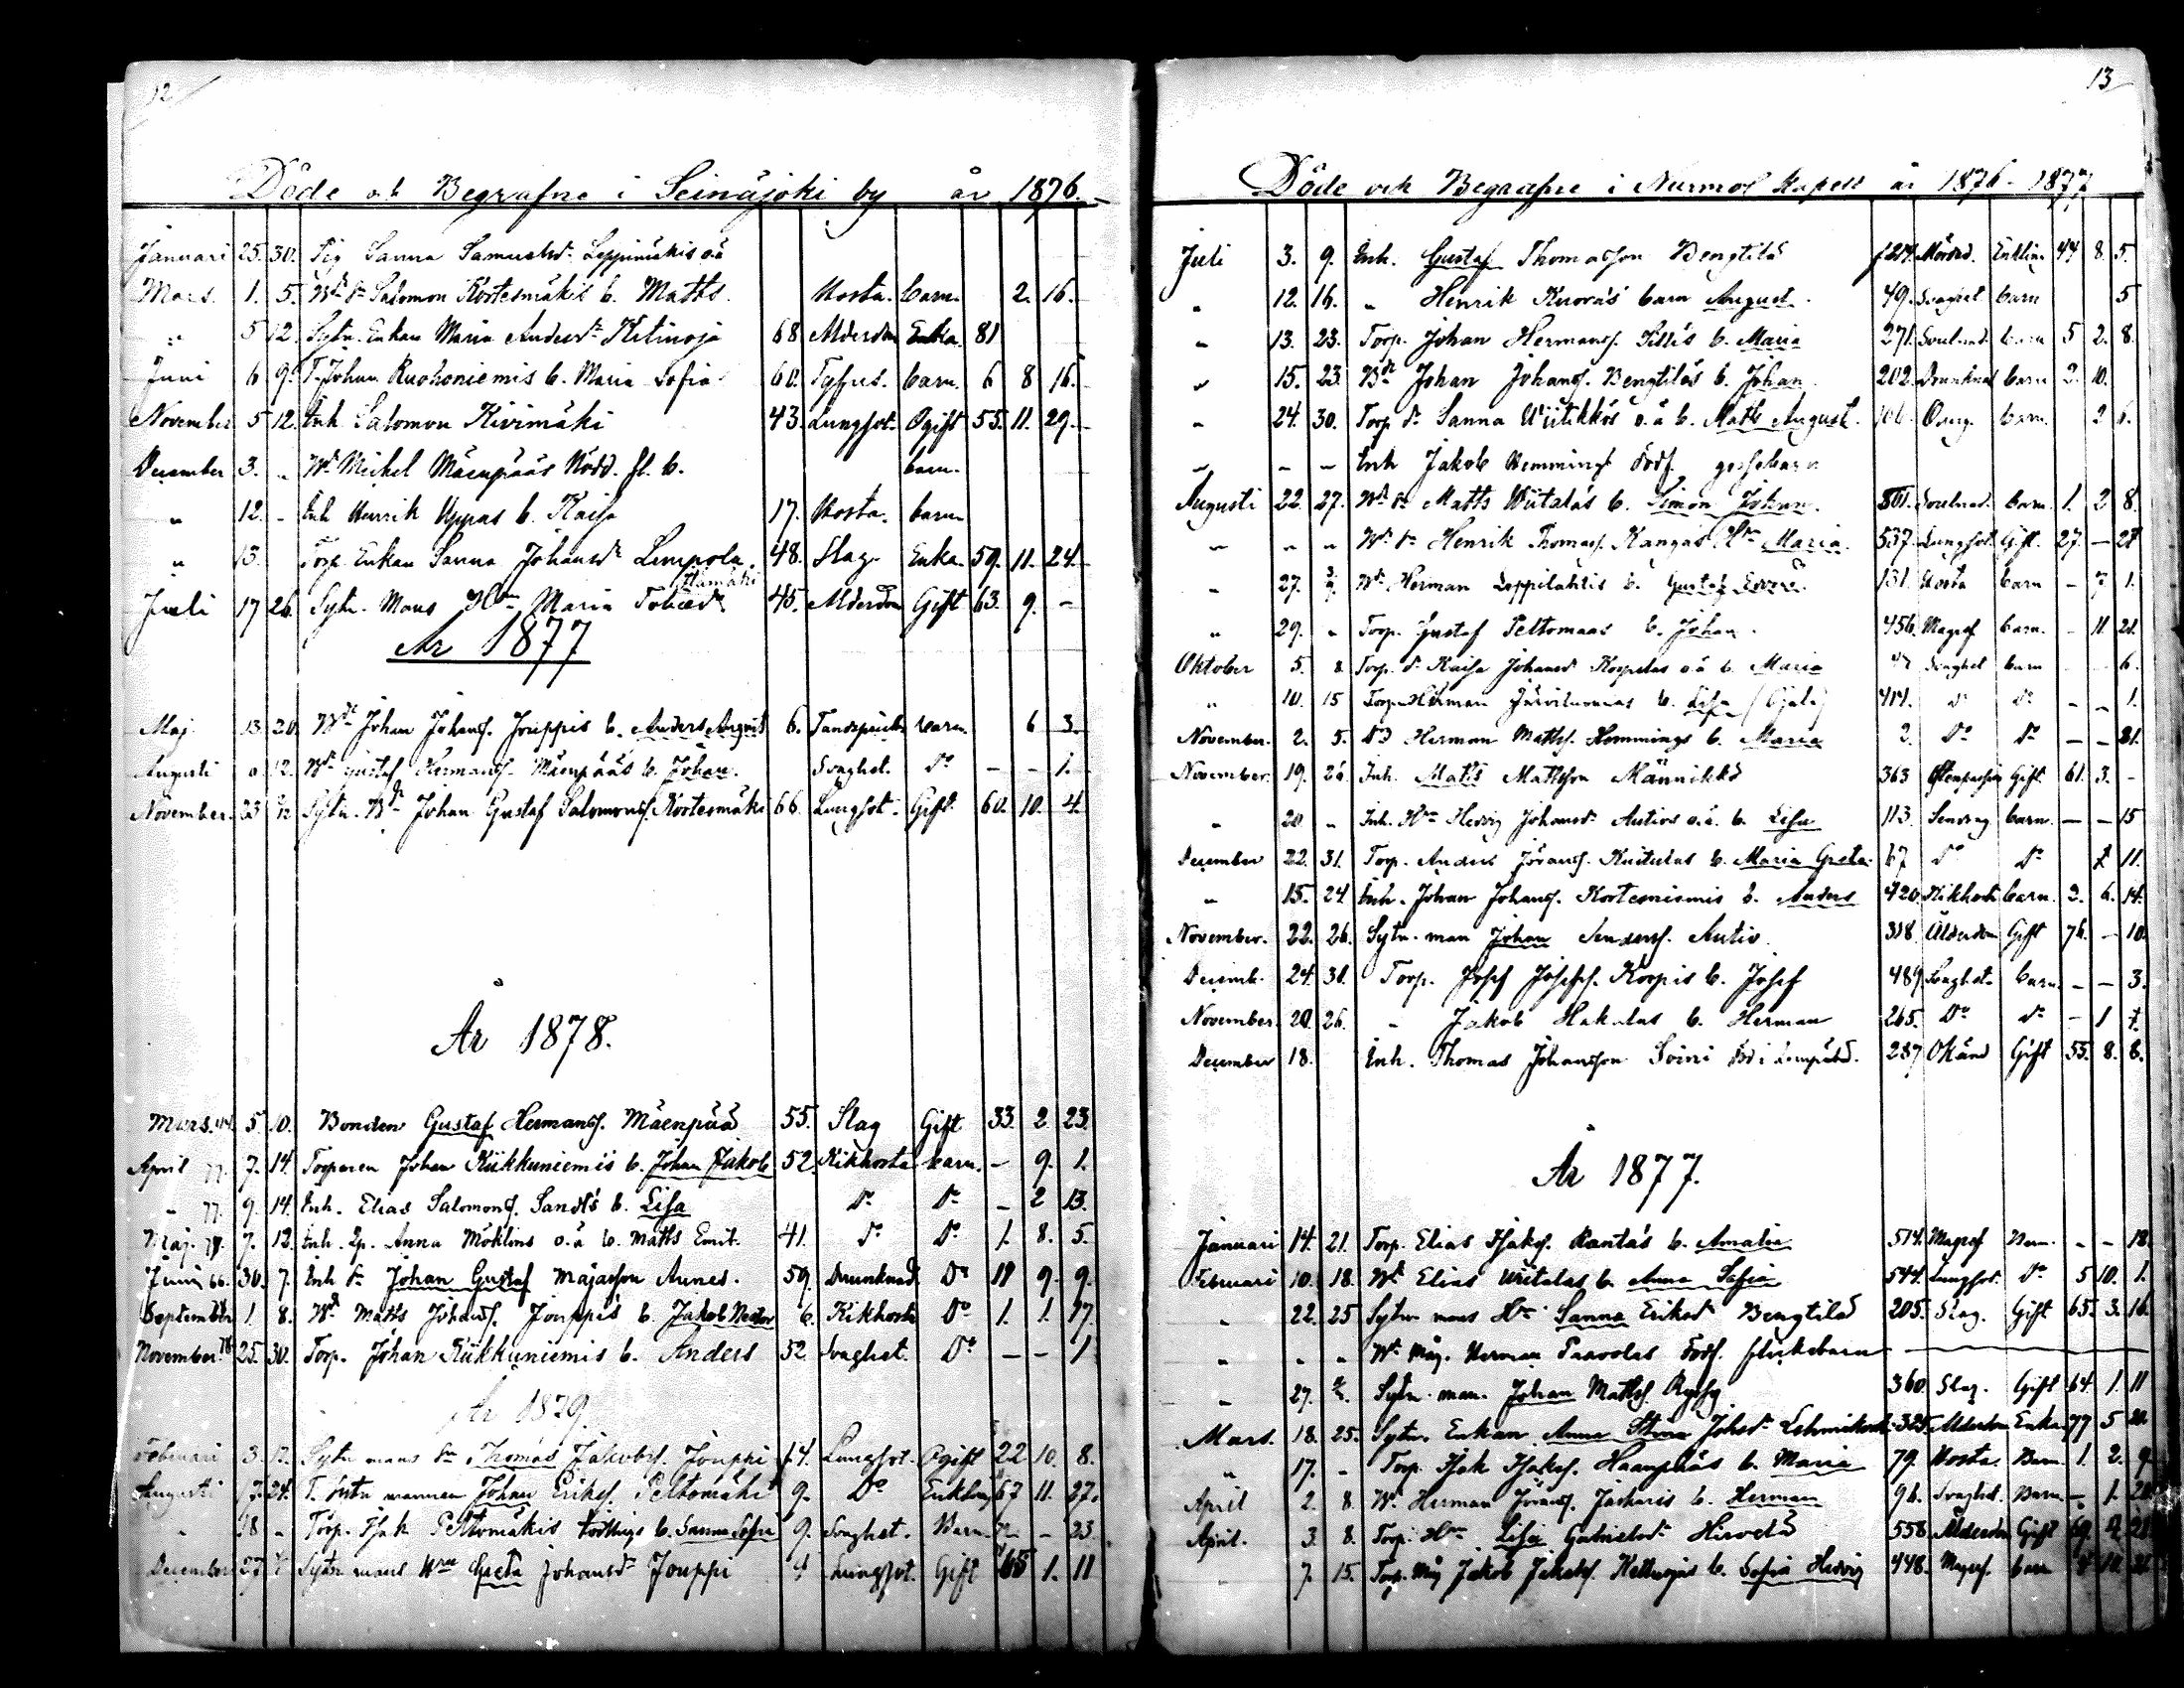 12
Döde och Begrafne i Seinäjoki by år 1876.
Januari 25. 30. Pig Sanna Samuelsd. Leppimäkis o.ä
Mars. 1. 5. Bd. Sn Salomon Kortesmäkis b. Matts. Hosta. barn. 2. 16.
" 5 12. Sytn. Enkan Maria Andersdr Ketinoja 68 Ålderdom Enka. 81
Juni 6 9. T. Johan Ruohoniemis b. Maria Sofia 60. Tyfus. barn. 6 8 16.
November 5 12. Inh Salomon Kivimäki 43. Lungsot. Ogift 55. 11. 29.
December 3. " Bd Michel Mäenpääs Nödd. fl. b. barn.
" 12. - Inh Henrik Uppas b. Kaisa 17. Hosta. barn
" 13. Torp. Enkan Sanna Johansdr Limpola. 48. Slag. Enka. 59. 11. 24.
Juli 17 26. Sytn. Mans Hu Maria Tobiedr 45. Ålderdom Gift 63. 9. -
År 1877
Maj 13. 20. Bd Johan Johans. Jouppis b. Anders August 6. barn. 6 3.
Augusti 12. Bd Gustaf Hermans. Mäenpääs b. Johan. Svaghet. Do - - 1.
November. 23 Sytn. Bd Johan Gustaf Salomons. Kortesmäki 66. Lungsot. Gift 60. 10. 4.
År 1878.
Mars. 44. 5. 10. Bonden Gustaf Hermans. Mäenpää 55. Slag Gift 33. 2 23.
April 77. 7. 14. Torparen Johan Kiikkuniemis b. Johan Jakob 52. Kikhosta barn. - 9. 1.
" 77. 9. 14. Inh. Elias Salomons. Sandts b. Lisa Do Do - 2 13.
Maj. 77. 7. 12. Inh. Ep. Anna Möklins o.ä b. Matts Emil. 41. Do Do 1. 8. 5.
Juni 66. 30. 7. Inh Sn Johan Gustaf Majasson Annes. 59. Drunknad Do 11 9. 9.
September 1. 8. Bd Matts Johans. Jouppis b. Jakob Nestor 6. Kikhosta Do 1. 1. 17.
November. 78 25. 30. Torp. Johan Kiikkuniemis b. Anders 52 Svaghet. Do - - 1
År 1879
Februari 3. 12. Sytn mans Sn Thomas Jakobs. Jouppi 14. Lungsot. Ogift 22 10. 8.
Augusti 17. 24. T. Sytn mannen Johan Eriks. Peltomäki 9. Do Enkling 67 11. 27.
" 18 " Torp. Isak Peltomäkis tvillings b. Sanna Sofia 9. Svaghet. Barn. - 23.
December 27 Sytn mans Hu Greta Johansdr Jouppi 4 Lungsot. Gift 65 1. 11
13
Döde och Begrafne i Nurmo Kapell år 1876-1877
Juli 3. 9. Inh. Gustaf Thomasson Bengtilä Mördad. Enkling 44 8. 5.
" 12. 16. " Henrik Kuoras barn August. 49. Svaghet barn 5
" 13. 23. Torp. Johan Hermans. Sillis b. Maria 271. barn 5 2. 8.
" 15. 23. Bd Johan Johans. Bengtiläs b. Johan 202. Drunknad barn 2. 10.
" 24. 30. Torp. dr Sanna Wiitikkös o.ä b. Matts August. 106. barn. 2 6.
" - - Inh Jakob Hemmings dödf. gossebarn
Augusti 22. 27. Bd Sn Matts Wiitalas b. Simon Johan. 501. barn. 1. 2 8.
" " " Bd Sn Henrik Thomas. Kangas Hu Maria. 537. Lungsot. Gift. 27. - 27
" 27. Bd Herman Leppilahtis b. Gustaf 131. Hosta barn - 7 1.
" 29. " Torp. Gustaf Peltomaas b. Johan. 456. Magsot barn. - 11 21.
Oktober 5. 8. Torp. dr Kaisa Johansd. Korpelas o.ä b. Maria 47 Svaghet barn - - 6.
" 10. 15 Torp. Herman Järviluomas b. Lisa 414. do do - - 1.
November. 2. 5. Bd Herman Matts. Hemmings b. Maria 2. Do Do - - 21.
November. 19. 26. Inh. Matts Mattsson Männikkö 363 Gift. 61. 3. -
" 20 " Inh. Hu Hedvig Johansdr Autios o.ä. b. Lisa 113. Sendrag barn. - - 15
December 22. 31. Torp. Anders Görans. Kuitulas b. Maria Greta. 67 Do Do 11.
" 15. 24. Inh. Johan Johans. Kortesniemis b. Anders 420 Kikhosta barn. 2. 6. 14.
November. 22. 26. Sytn. man Johan Anders. Autio 318. Ålderdom Gift 76. - 10.
Decemb. 24. 31. Torp. Josef Josefs. Korpis b. Josef 489. Svaghet. barn. - - 3.
November 20. 26. " Jakob Hakalas b. Herman 265. Do do - 1
December 18. Inh. Thomas Johansson Soini död i Lempälä. 287 Okänd Gift 55. 8. 8.
År 1877.
Januari 14. 21. Torp. Elias Isaks. Rantas b. Amalia 514. Magsot Barn. - - 18.
Februari 10. 18. Bd Elias Wiitalas b. Anna Sofia 544. Lungsot. Do 5 10. 1.
" 22. 25 Sytn mans Hu Sanna Eriksdr Bengtilä 205. Slag. Gift 65. 3. 16.
" " " Bd Måg. Herman Paavolas Dödf. flickebarn
" 27. Sytn. man. Johan Matts. Ryssy 360. Slag. Gift 64. 1. 11
Mars. 18. 25. Sytn. Enkan Anna Stina Johsdr 325. Ålderdom Enka 77 5 20.
" 17. - Torp. Isak Isaks. Haanpääs b. Maria 79. Hosta. Barn. 1. 2. 9.
April 2. 8. Bd Herman Görans. Jaskaris b. Herman 96. Svaghet. Barn. - 1. 28
April. 3. 8. Torp. Hu Lisa Gabrielsdr Hirvelä 558. Ålderdom Gift 69
7. 15. Torp. Måg Jakob Jakobs. b. Sofia Hedvig 448. Magsot. barn